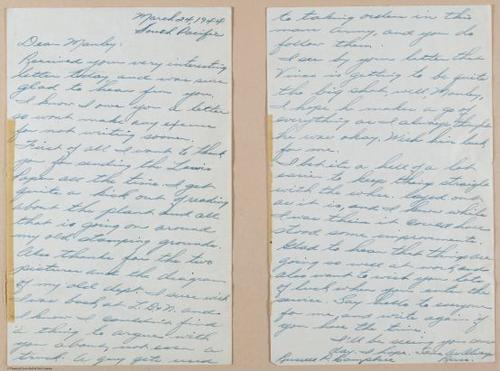 March 24, 1944
South Pacific
Dear Manly:
Received your very interesting
letter today and was sure
glad to hear from you.
I know I owe you a letter
so wont make any excuse
for not writing sooner.
First of all I want to thank
you for sending the
all the time. I get
quite a kick out of reading
about the plant and all
that is going on around
my old stomping grounds.
Also thanks for the two
pictures and the diagram
of my old dept. I sure wish
I was back at L.B.N. and
I know I couldn't find
a thing to argue with
you about, not even a
truck. A guy gets used
to taking orders in this
man army, and you do
follow them.
I see by your letter that
is getting to be quite
the big shot, well Manly,
I hope he makes a go of
everything as I always thought
he was okay. Wish him luck
for me.
I bet it's a hell of a lot
easier to keep things straight
with the layed out
as it is, and I know while
I was there it could have
stood some improvements.
Glad to hear that things are
going so well at work and
also want to wish you lots
of luck when you enter the
service. Say hello to everyone
for me, and write again if
you have the time.
I'll be seeing you one
day I hope. As Always
Russ.